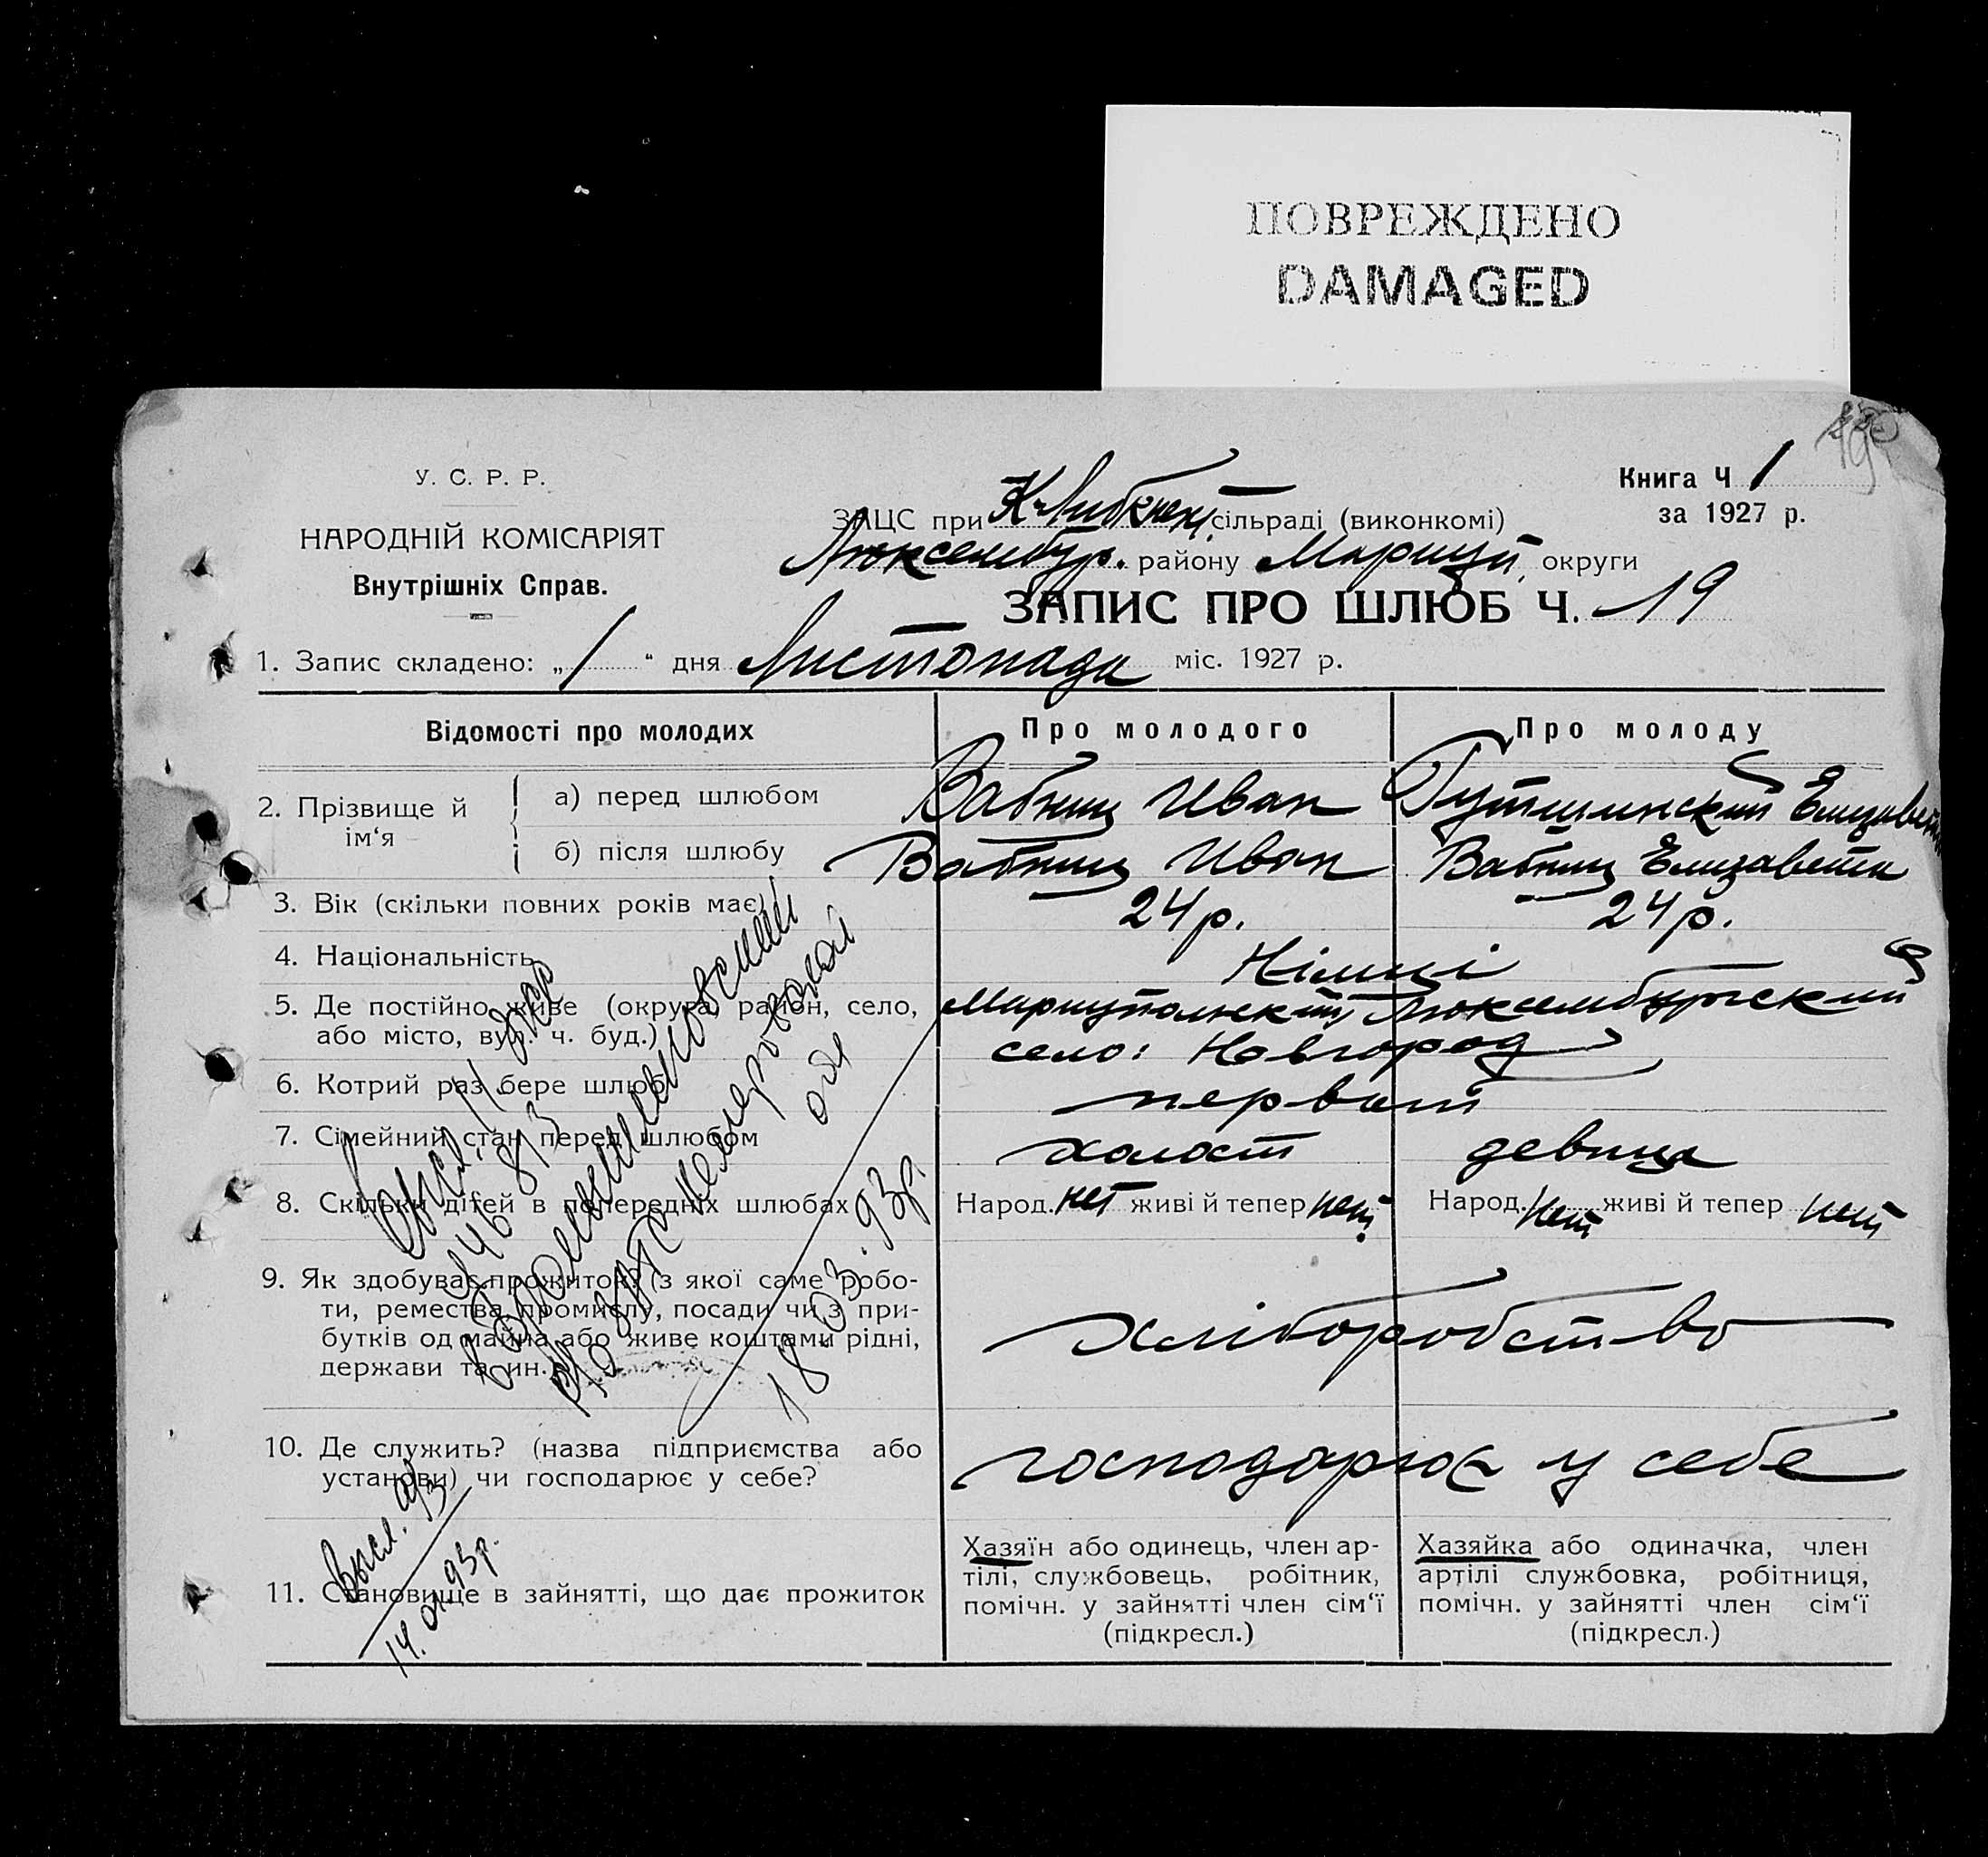 ПОВРЕЖДЕНО
DAMAGED
У. С. Р. Р.
НАРОДНІЙ КОМІСАРІЯТ
Внутрішніх Справ.
Книга Ч 1
за 1927 р.
ЗАЦС при К-Либкнехт сільраді (виконкомі)
Люксембур. району Маріуп. округи
ЗАПИС ПРО ШЛЮБ Ч. 19
1. Запис складено: „1“ дня Листопада міс. 1927 р.
Відомості про молодих
Про молодого
Про молоду
2. Прізвище й ім‘я
а) перед шлюбом
Вабниц Иван
Елизавета
б) після шлюбу
Вабниц Иван
Вабниц Елизавета
3. Вік (скільки повних років має)
24 р.
24 р.
4. Національність
Німці
5. Де постійно живе (округа, район, село,
або місто, вул. ч. буд.)
Мариупольский Люксембургский
село: Новгород
6. Котрий раз бере шлюб
первый
7. Сімейний стан перед шлюбом
холост
девица
8. Скільки дітей в попередніх шлюбах
Народ. нет живі й тепер нет
Народ. нет живі й тепер нет
9. Як здобуває прожиток? (з якої саме робо-
ти, ремества, промислу, посади чи з при-
бутків од майна або живе коштами рідні,
держави та ин.)
хліборобство
10. Де служить? (назва підприємства або
установи) чи господарює у себе?
господарює у себе
11. Становище в зайнятті, що дає прожиток
Хазяїн або одинець, член ар-
тілі, службовець, робітник,
помічн. у зайнятті член сім‘ї
(підкресл.)
Хазяйка або одиначка, член
артілі службовка, робітниця,
помічн. у зайнятті член сім‘ї
(підкресл.)
18.03.93р.
Высл.
14.01.93р.